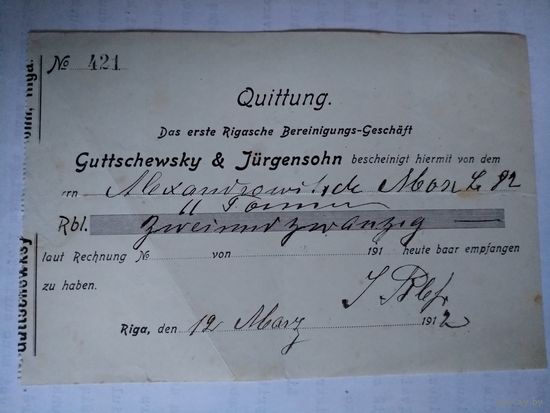 № 421
Quittung.
Das erste Rigasche Bereinigungs-Geschäft
Guttschewsky & Jürgensohn bescheinigt hiermit von dem
rrn Alexandrowitsche 82
11 Tonnen
Rbl. Zweiundzwanzig —
laut Rechnung № von 191 heute baar empfangen
zu haben.
Riga, den 12 März 1912
Guttschewsky
Riga.